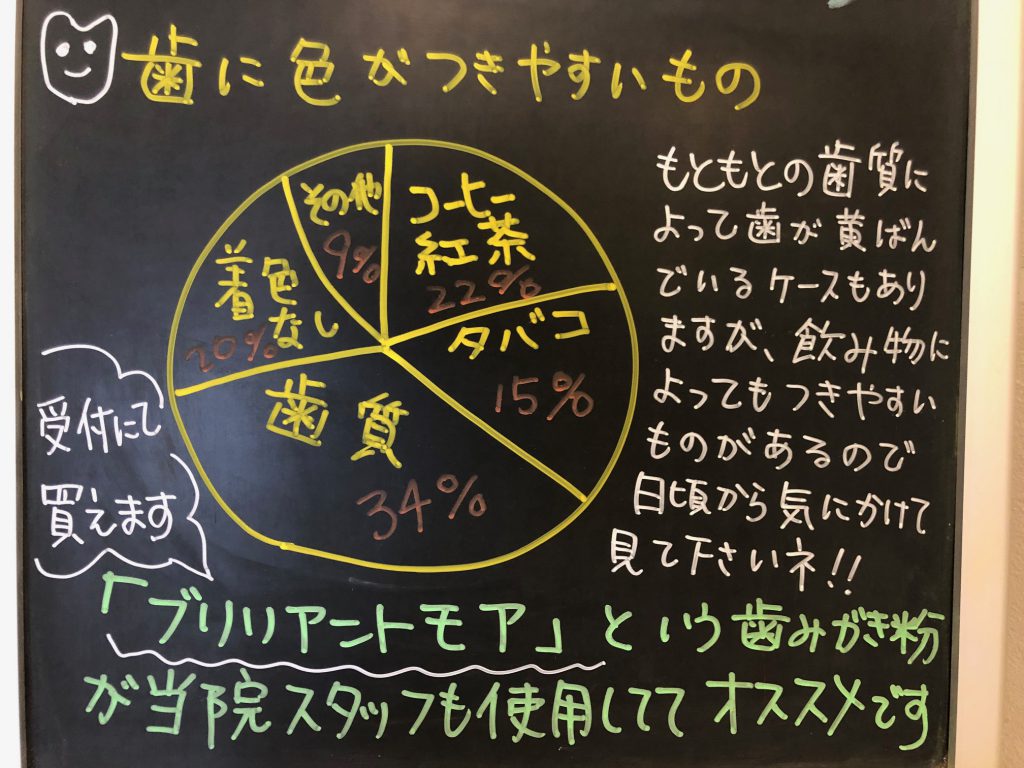 歯に色がつきやすいもの
その他
9%
コーヒー
紅茶
22%
着色
なし
20%
タバコ
15%
歯質
34%
もともとの歯質に
よって歯が黄ばん
でいるケースもあり
ますが、飲み物に
よってもつきやすい
ものがあるので
日頃から気にかけて
見て下さいネ!!
受付にて
買えます
「ブリリアントモア」という歯みがき粉
が当院スタッフも使用しててオススメです